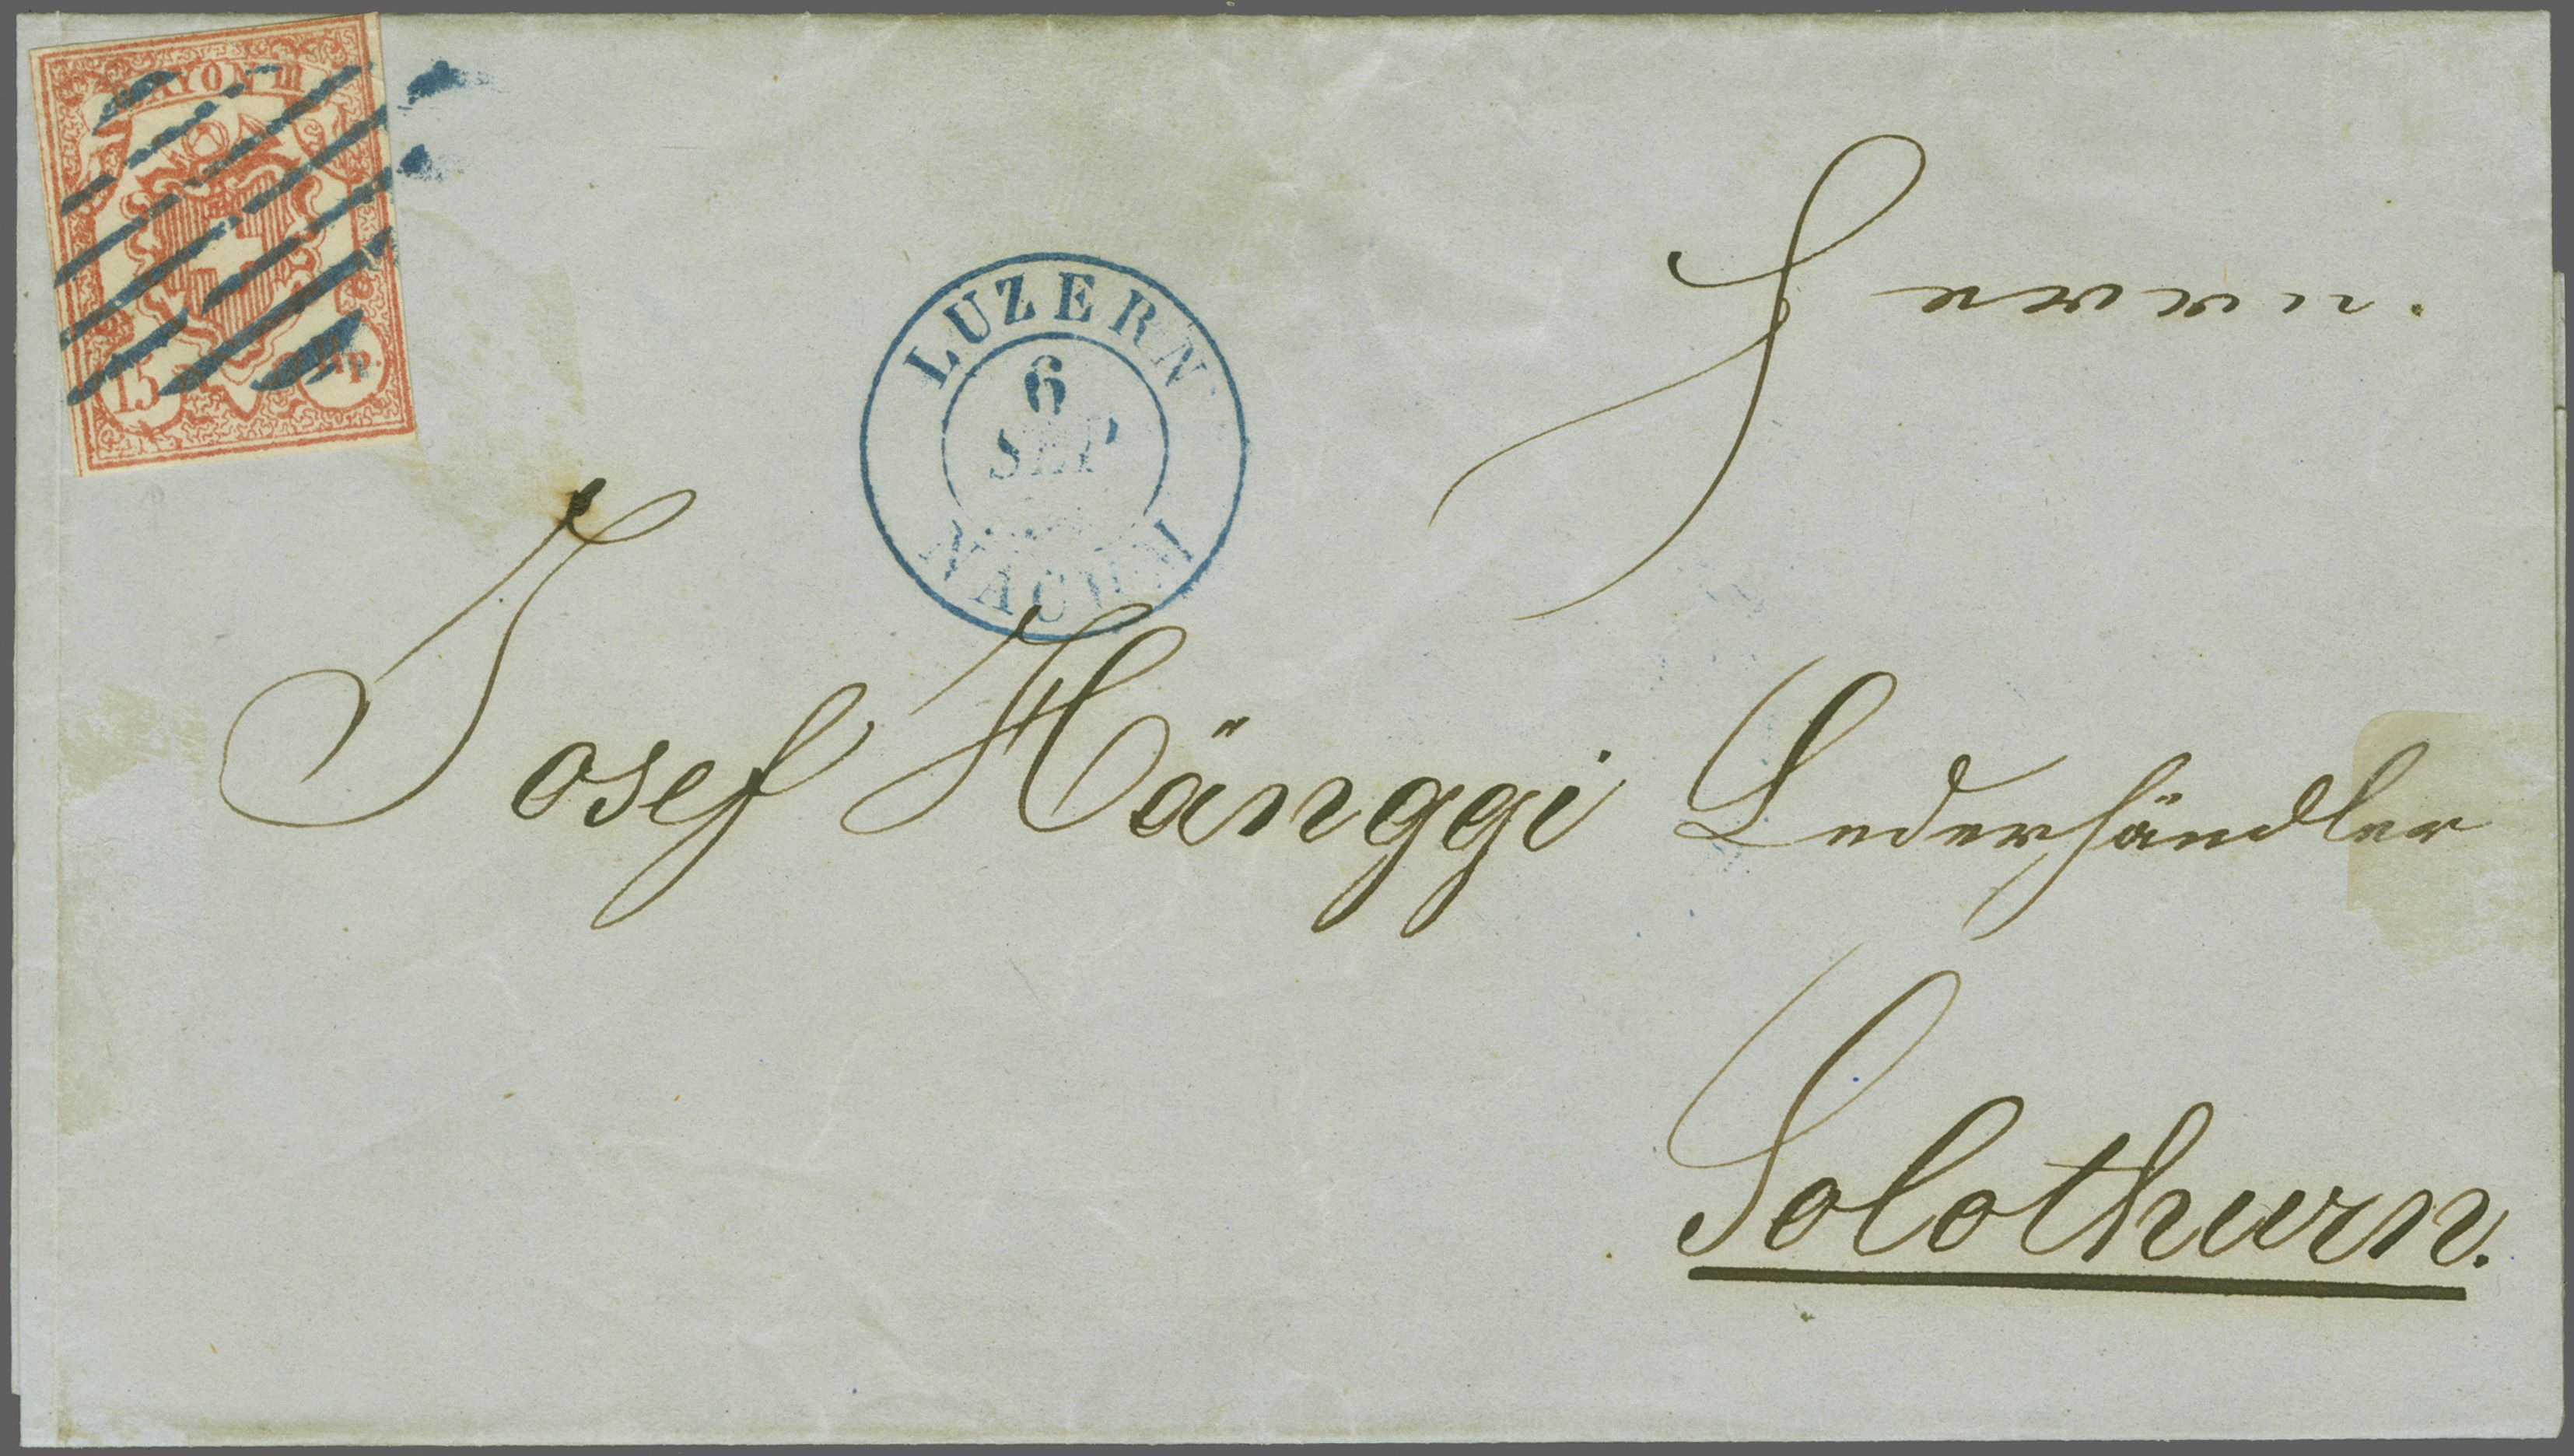 RAYON III
15 Rp.
LUZERN
6
SEP
NACHM
Herrn.
Josef Hänggi Lederhändler
Solothurn.